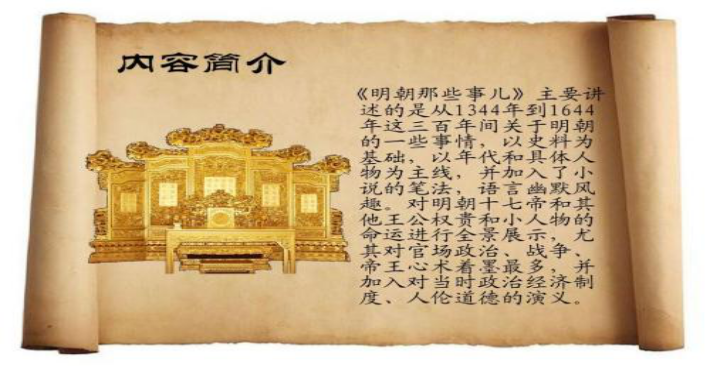 内容简介
《明朝那些事儿》主要讲
述的是从1344年到1644
年这三百年间关于明朝
的一些事情，以史料为
基础，以年代和具体人
物为主线，并加入了小
说的笔法，语言幽默风
趣。对明朝十七帝和其
他王公权贵和小人物的
命运进行全景展示，尤
其对官场政治、战争、
帝王心术着墨最多，并
加入对当时政治经济制
度、人伦道德的演义。